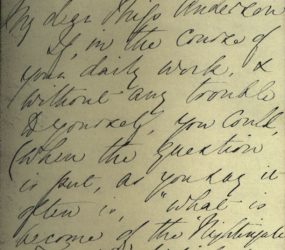 My dear Miss Anderson
If, in the course of
your daily work, &
without any trouble
to yourself, you could,
(when the question
is put, as you say it
often is, "what is
become of the Nightingale